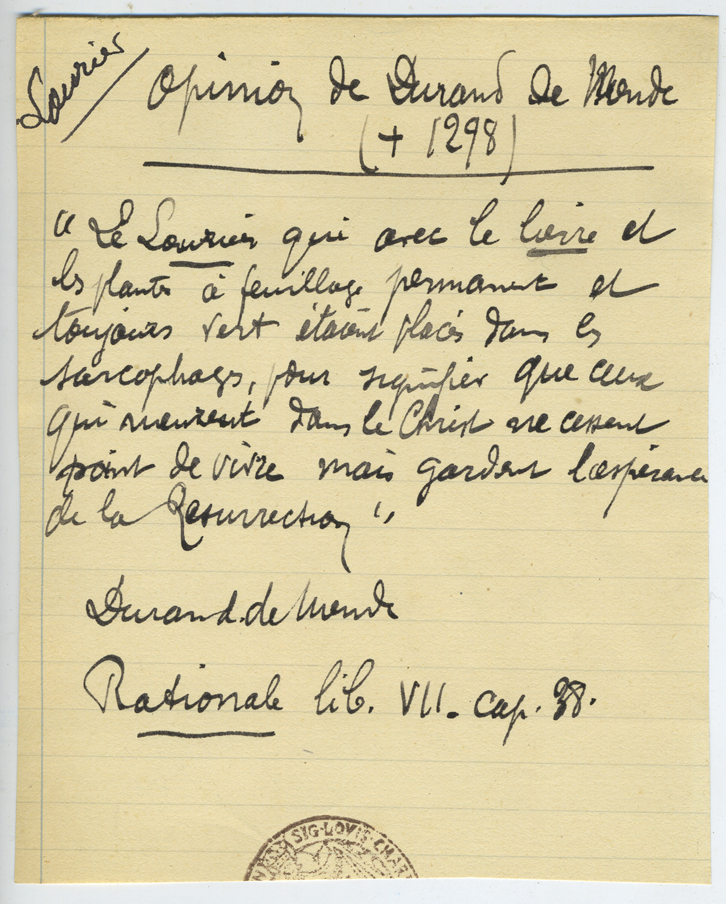 Laurier
Opinion de Durand de Mende
(+ 1298)
"Le Laurier qui avec le lierre et
les plantes à feuillage permanent et
toujours vert étaient placés dans les
sarcophages, pour signifier que ceux
qui meurent dans le Christ ne cessent
point de vivre mais gardent l'espérance
de la Resurrection"
Durand de Mende
Rationale lib. VII. cap. 38.
SIG·LOVIS·CHAR